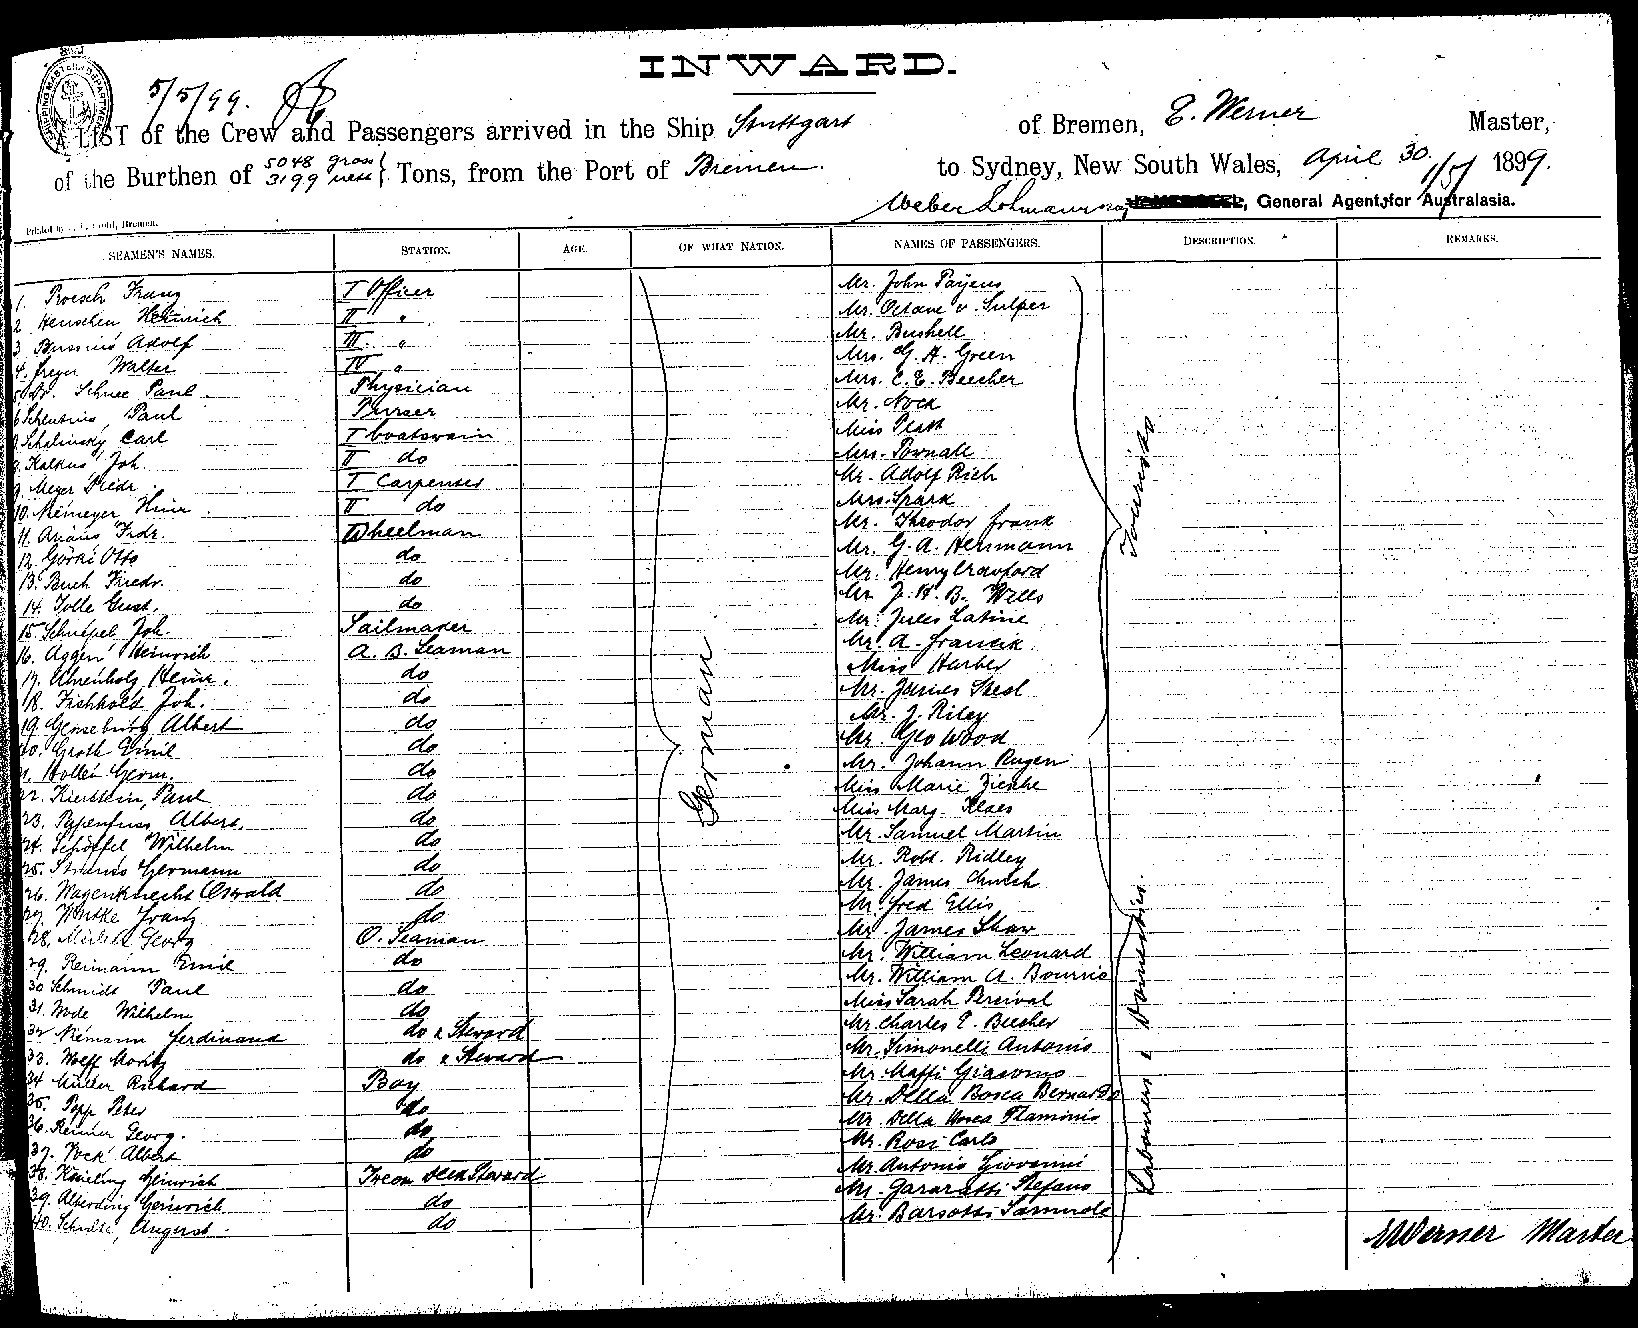 INWARD.
5/5/99.
A LIST of the Crew and Passengers arrived in the Ship Stuttgart of Bremen, E. Werner Master,
of the Burthen of 5048 gross 3199 nett Tons, from the Port of Bremen. to Sydney, New South Wales, April 30. 1/5/ 1899.
Weber Lohmann & Co, General Agents, for Australasia.
SEAMEN'S NAMES. STATION. AGE. OF WHAT NATION. NAMES OF PASSENGERS. DESCRIPTION. REMARKS.
1. Proesch Franz I Officer Mr. John Payens
2 Henschen Heinrich II " Mr. Octave v. Sulper
3 Bussius Adolf III. " Mr. Bushell
4. Freyer Walter IV " Mrs. G. H. Green
5 Dr. Schnee Paul. Physician Mrs. C. E. Beecher
6 Schlentrius, Paul Purser Mr. Nock
7 Schalinsky Carl I boatswain Miss Platt
8. Kalkus Joh. II do Mrs. Pownall
9. Meyer Diedr. I Carpenter Mr. Adolf Rich
10. Niemeyer Hinr. II do Mrs. Spark
11. Arians Frdr. Wheelman Mr. Theodor Frank
12 Görki Otto do Mr. G. A. Herrmann
13. Buch Friedr. do Mr. Henry Crawford
14. Tolle Gust. do Mr J. H. B. Wills
15. Schulpel Joh. Sailmaker Mr. Jules Latine
16. Aggen Heinrich A. B. Seaman Mr. A. Francik
17. Ahrenholz Heinr. do Miss Harber
18. Fishhold Joh. do Mr. James Steel
19. Genseburg Albert do Mr. J. Riley
20. Groth Emil do Mr. Geo Wood
21. Hollen Herm. do Mr. Johann Rugen
22. Kierstein, Paul do Miss Marie Zielke
23. Papenfuss Albert. do Miss Marg. Klaes
24. Schöffel Wilhelm do Mr. Samuel Martin
25. Strauss Hermann do Mr. Robt. Ridley
26. Wagenknecht Oswald do Mr. James Church
27. Wutke Franz do Mr. Fred Ellis
28. Georg O. Seaman Mr. James Shaw
29. Reimann Emil do Mr. William Leonard
30 Schmidt Paul do Mr. William A. Bourris
31. Wode Wilhelm do Miss Sarah Percival
32 Niemann Ferdinand do & Steward Mr. Charles E. Beecher
33. Wolff Moritz do & Steward Mr. Simonelli Antonio
34 Müller Richard Boy Mr. Maffi Giacomo
35. Popp Peter do Mr. Della Bosca Bernardo
36. Renner Georg. do Mr. Della Bosca Flaminio
37. Fock Albert do Mr. Rossi Carlo
38. Heinrich Tween deck Steward Mr. Antonio Giovanni
39. Alberding Heinrich do Mr. Gararatti Stefano
40. Schulte, August. do Mr Barsotti Samuele
German
Tourists
Labourers & Domestics.
Werner Master